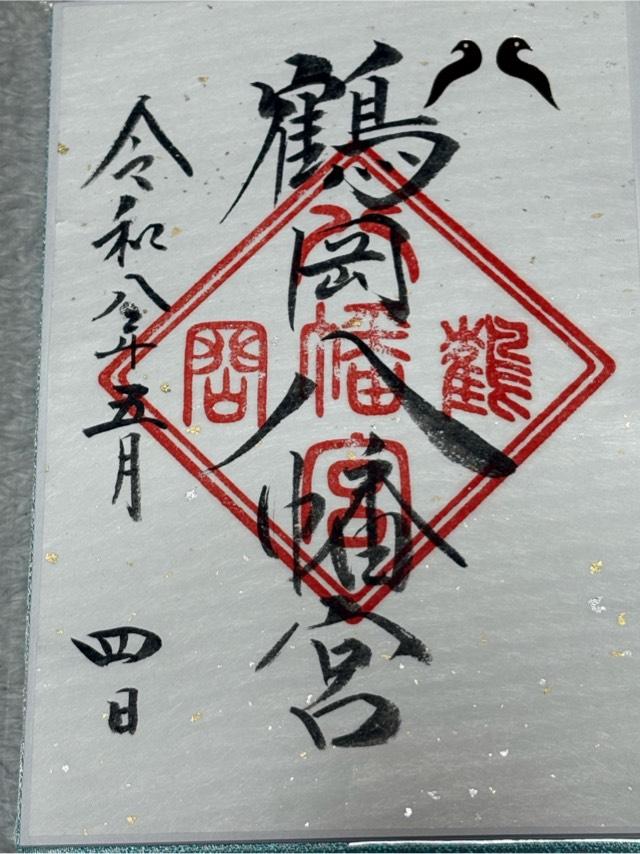 鶴岡八幡宮
令和八年五月 四日
鶴
八幡宮
岡